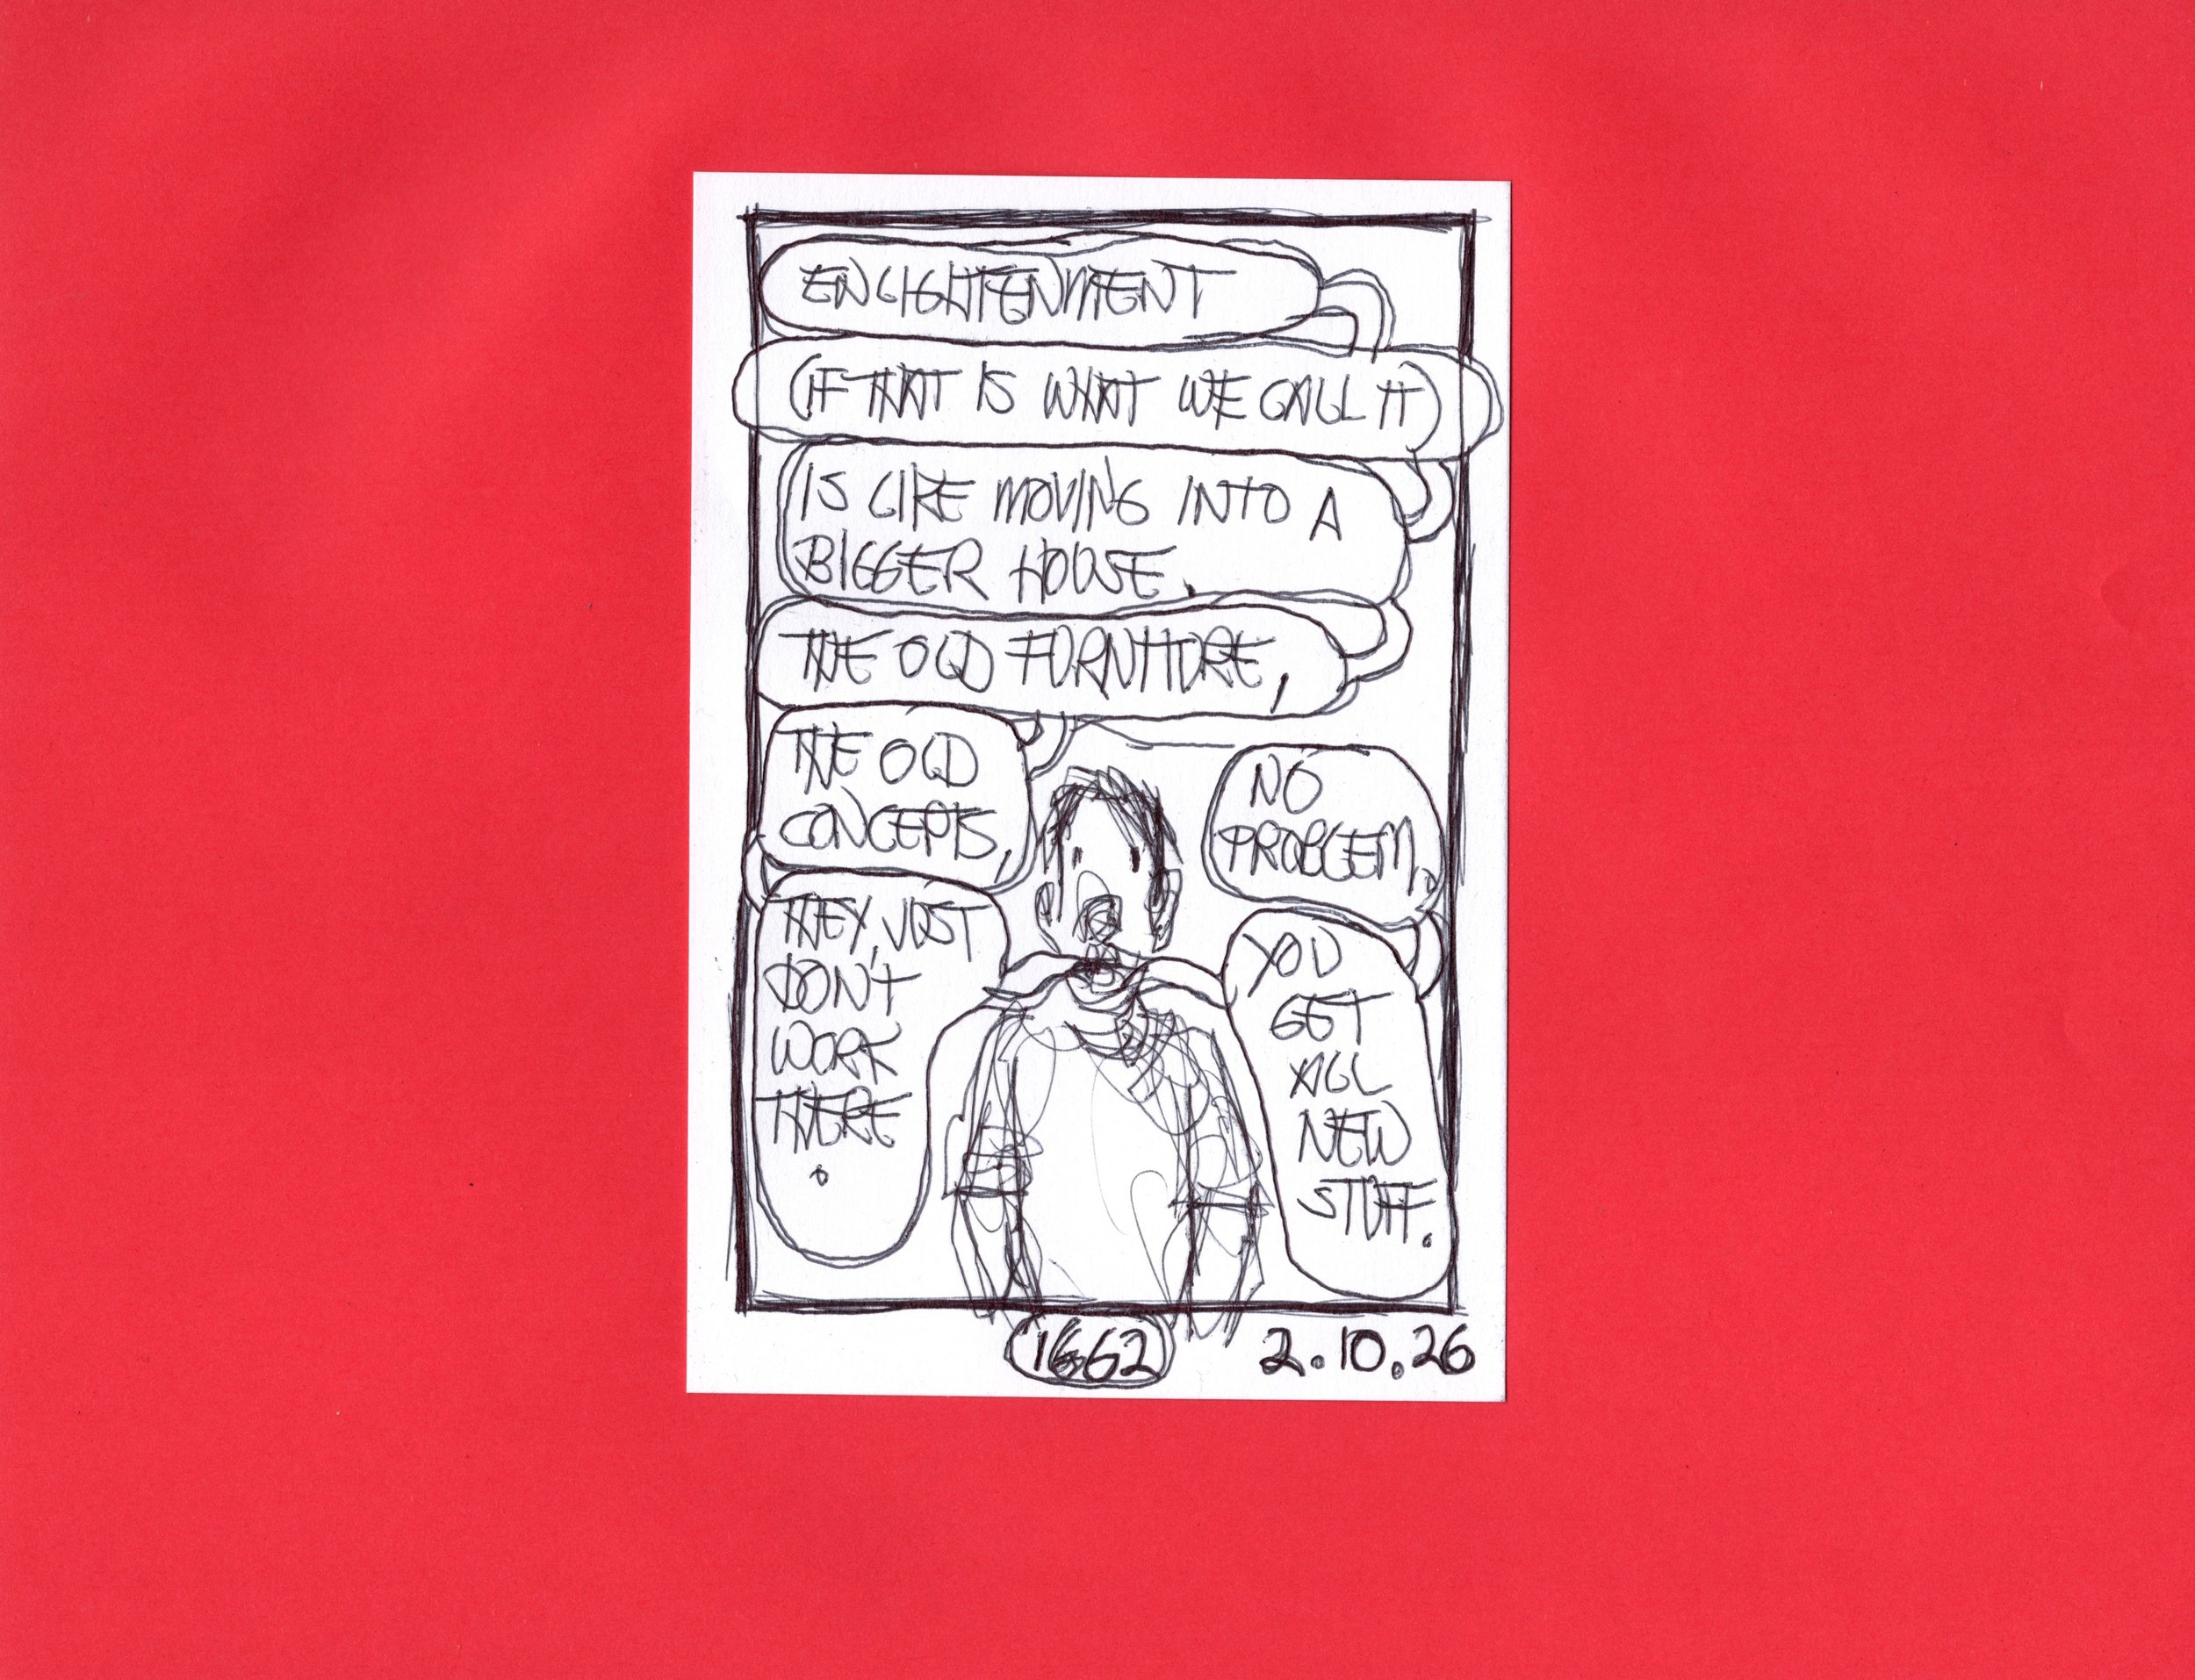 ENLIGHTENMENT
(IF THAT IS WHAT WE CALL IT)
IS LIKE MOVING INTO A
BIGGER HOUSE.
THE OLD FURNITURE,
THE OLD
CONCEPTS,
THEY JUST
DON'T
WORK
THERE
.
NO
PROBLEM.
YOU
GET
ALL
NEW
STUFF.
1662
2.10.26